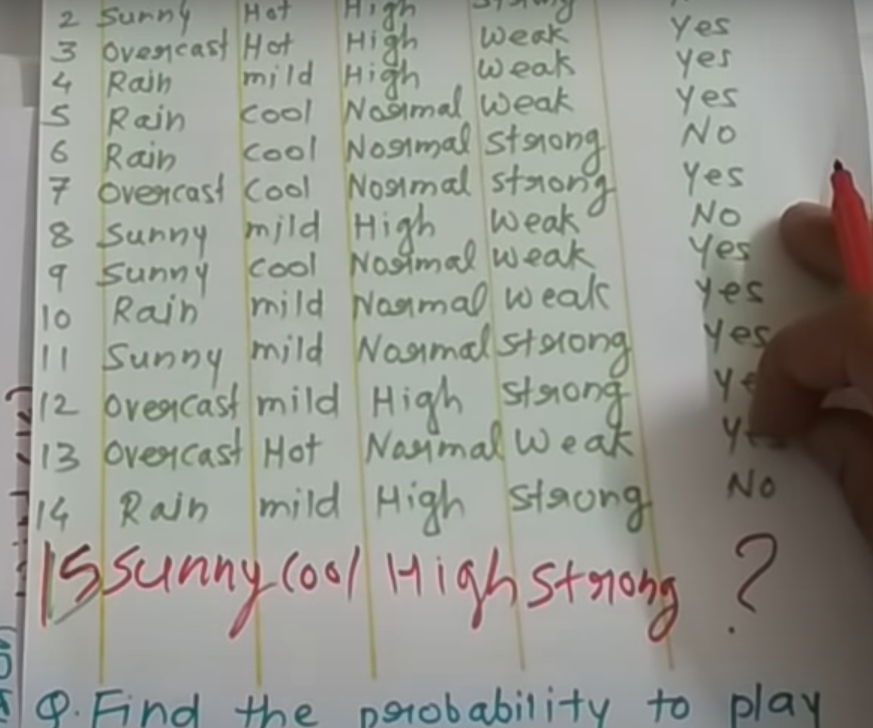 2 Sunny Hot High
3 Overcast Hot High Weak Yes
4 Rain mild High Weak Yes
5 Rain cool Normal Weak Yes
6 Rain cool Normal Strong No
7 Overcast Cool Normal Strong Yes
8 Sunny mild High Weak No
9 Sunny cool Normal Weak Yes
10 Rain mild Normal Weak Yes
11 Sunny mild Normal Strong Yes
12 Overcast mild High Strong
13 Overcast Hot Normal Weak
14 Rain mild High Strong No
15 Sunny Cool High Strong ?
Q. Find the probability to play